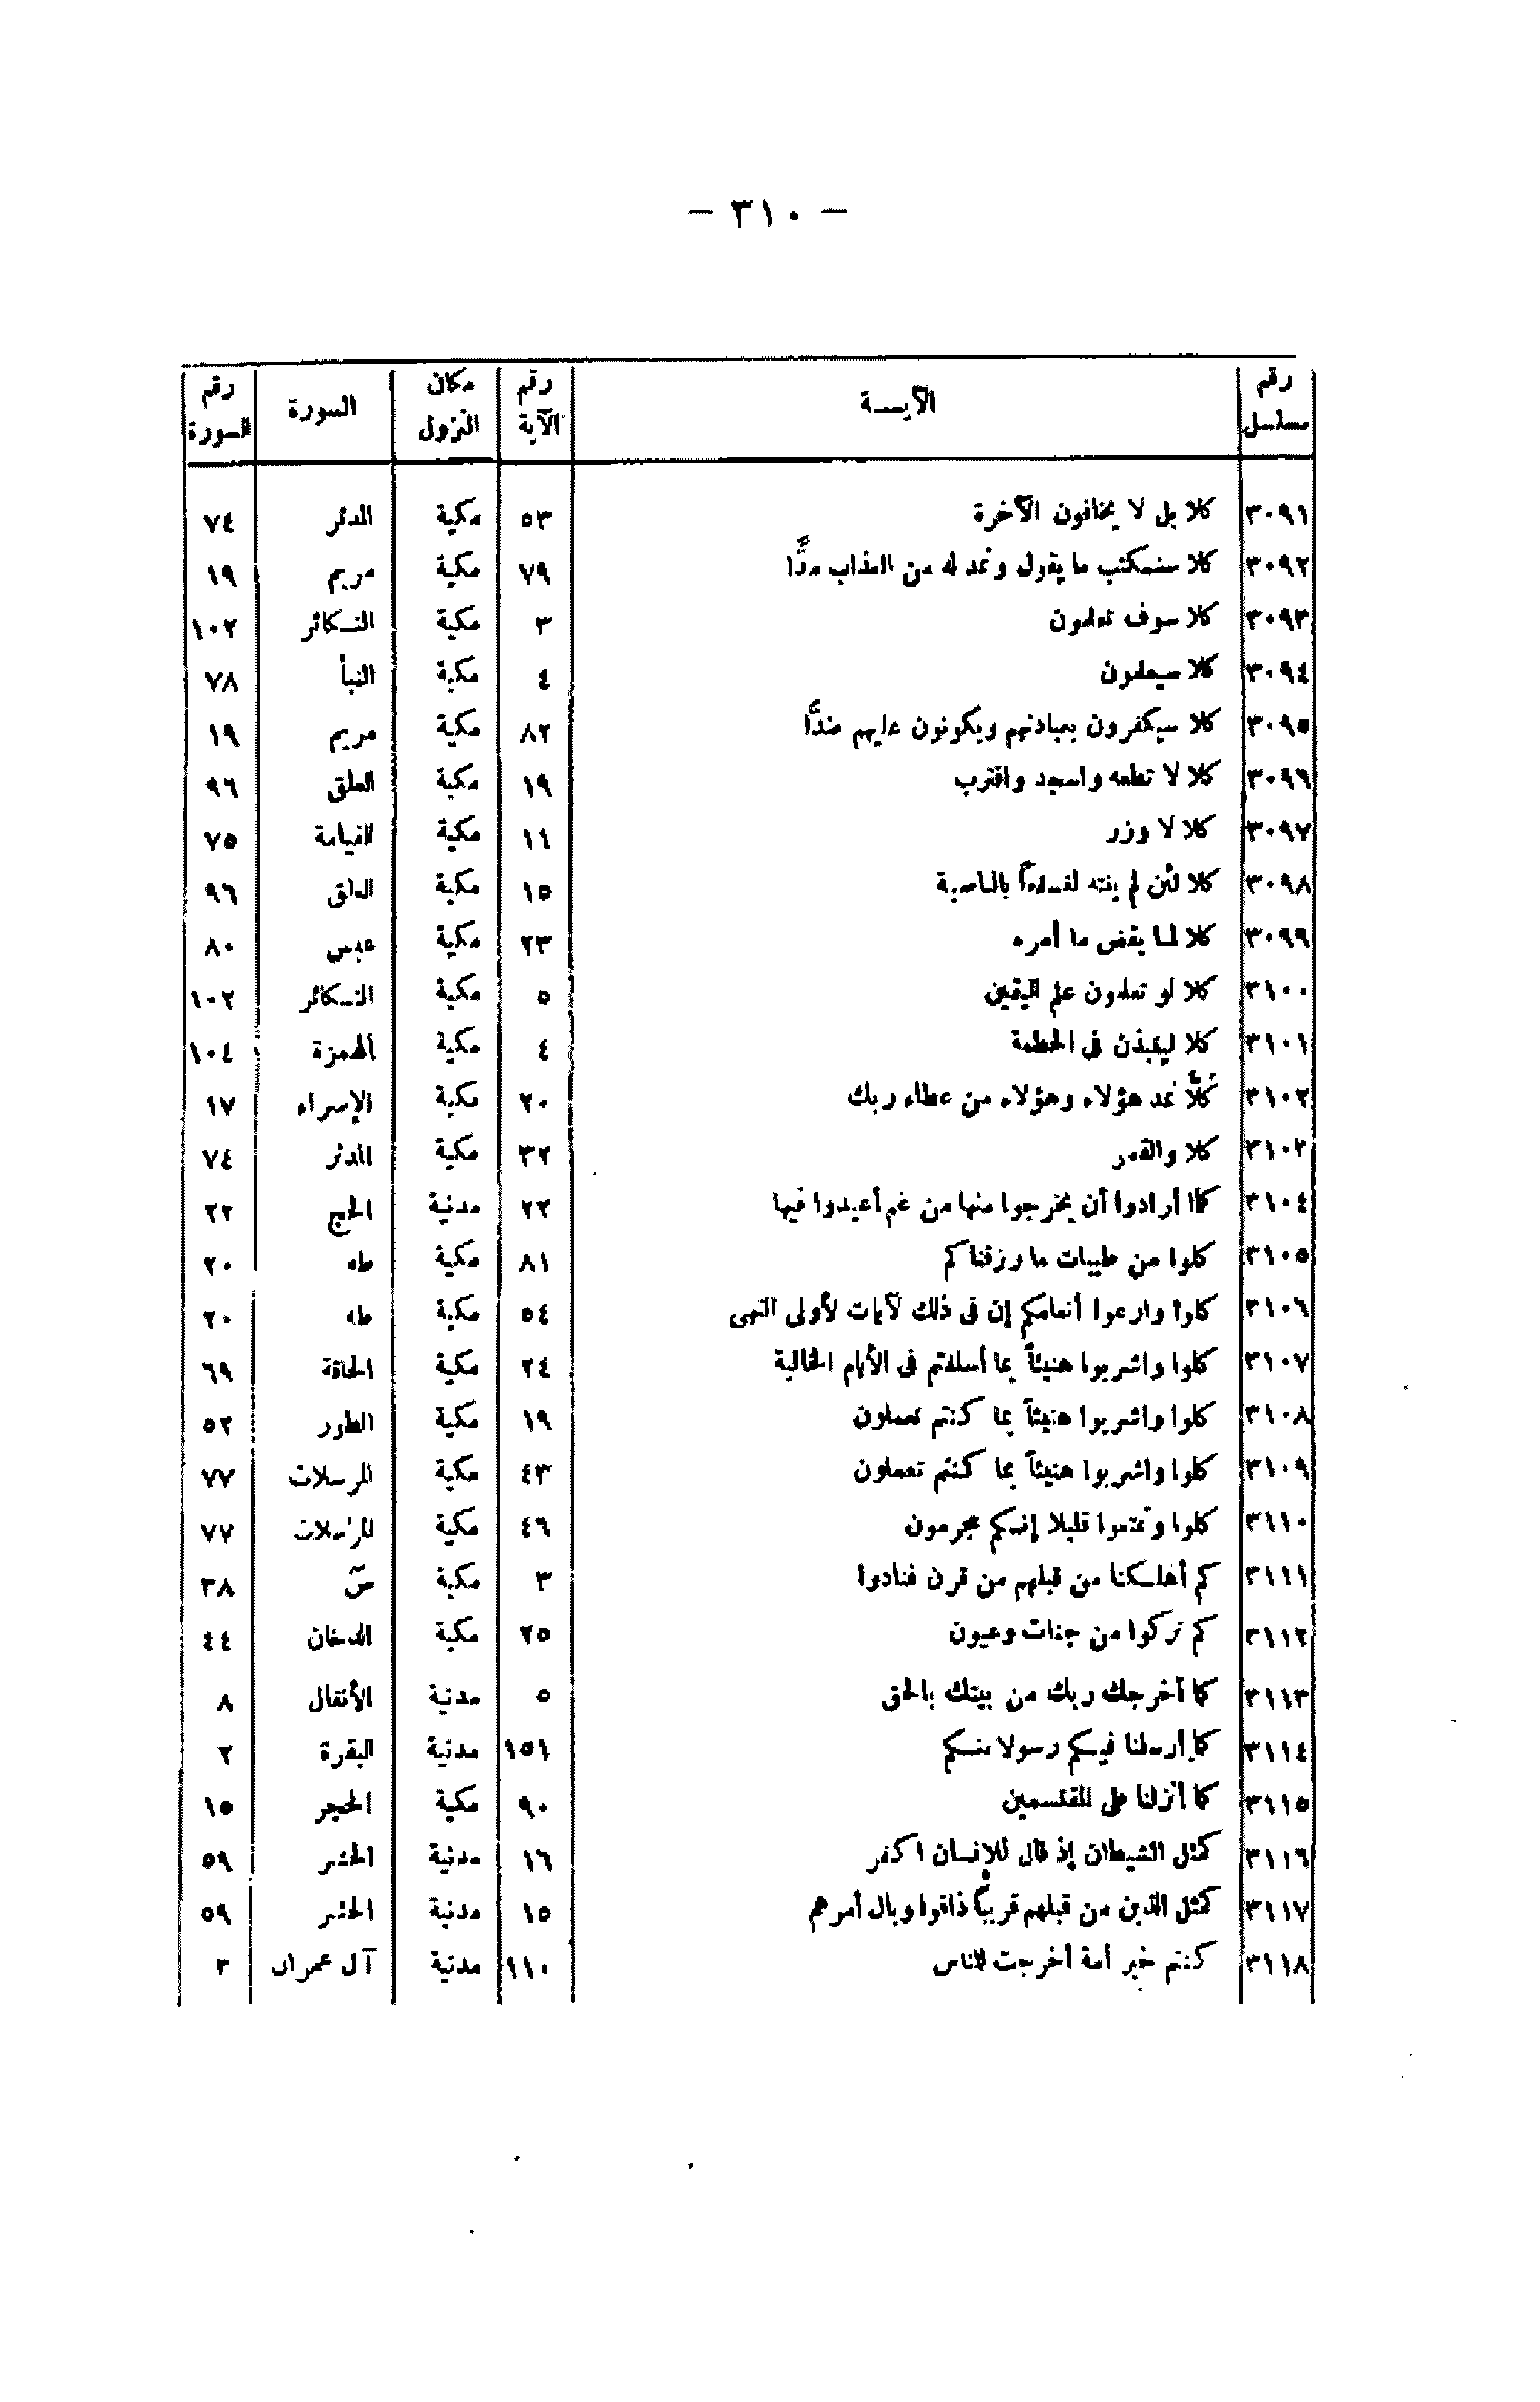 — ٣١٠ —
رقم مسلسل الآيـــة رقم الآية مكان النزول السورة رقم السورة
٣٠٩١ كلا بل لا يخافون الآخرة ٥٣ مكية المدثر ٧٤
٣٠٩٢ كلا سنكتب ما يقول ونمد له من العذاب مدًّا ٧٩ مكية مريم ١٩
٣٠٩٣ كلا سوف تعلمون ٣ مكية التكاثر ١٠٢
٣٠٩٤ كلا سيعلمون ٤ مكية النبأ ٧٨
٣٠٩٥ كلا سيكفرون بعبادتهم ويكونون عليهم ضدًّا ٨٢ مكية مريم ١٩
٣٠٩٦ كلا لا تطعه واسجد واقترب ١٩ مكية العلق ٩٦
٣٠٩٧ كلا لا وزر ١١ مكية القيامة ٧٥
٣٠٩٨ كلا لئن لم ينته لنسفعاً بالناصية ١٥ مكية العلق ٩٦
٣٠٩٩ كلا لما يقض ما أمره ٢٣ مكية عبس ٨٠
٣١٠٠ كلا لو تعلمون علم اليقين ٥ مكية التكاثر ١٠٢
٣١٠١ كلا لينبذن فى الحطمة ٤ مكية الهمزة ١٠٤
٣١٠٢ كُلًّا نمد هؤلاء وهؤلاء من عطاء ربك ٢٠ مكية الإسراء ١٧
٣١٠٣ كلا والقمر ٣٢ مكية المدثر ٧٤
٣١٠٤ كلما أرادوا أن يخرجوا منها من غم أعيدوا فيها ٢٢ مدنية الحج ٢٢
٣١٠٥ كلوا من طيبات ما رزقناكم ٨١ مكية طه ٢٠
٣١٠٦ كلوا وارعوا أنعامكم إن فى ذلك لآيات لأولى النهى ٥٤ مكية طه ٢٠
٣١٠٧ كلوا واشربوا هنيئاً بما أسلفتم فى الأيام الخالية ٢٤ مكية الحاقة ٦٩
٣١٠٨ كلوا واشربوا هنيئاً بما كنتم تعملون ١٩ مكية الطور ٥٢
٣١٠٩ كلوا واشربوا هنيئاً بما كنتم تعملون ٤٣ مكية المرسلات ٧٧
٣١١٠ كلوا وتمتعوا قليلا إنكم مجرمون ٤٦ مكية المرسلات ٧٧
٣١١١ كم أهلكنا من قبلهم من قرن فنادوا ٣ مكية صۤ ٣٨
٣١١٢ كم تركوا من جنات وعيون ٢٥ مكية الدخان ٤٤
٣١١٣ كما أخرجك ربك من بيتك بالحق ٥ مدنية الأنفال ٨
٣١١٤ كما أرسلنا فيكم رسولا منكم ١٥١ مدنية البقرة ٢
٣١١٥ كما أنزلنا على المقتسمين ٩٠ مكية الحجر ١٥
٣١١٦ كمثل الشيطان إذ قال للإنسان اكفر ١٦ مدنية الحشر ٥٩
٣١١٧ كمثل الذين من قبلهم قريباً ذاقوا وبال أمرهم ١٥ مدنية الحشر ٥٩
٣١١٨ كنتم خير أمة أخرجت للناس ١١٠ مدنية آل عمران ٣